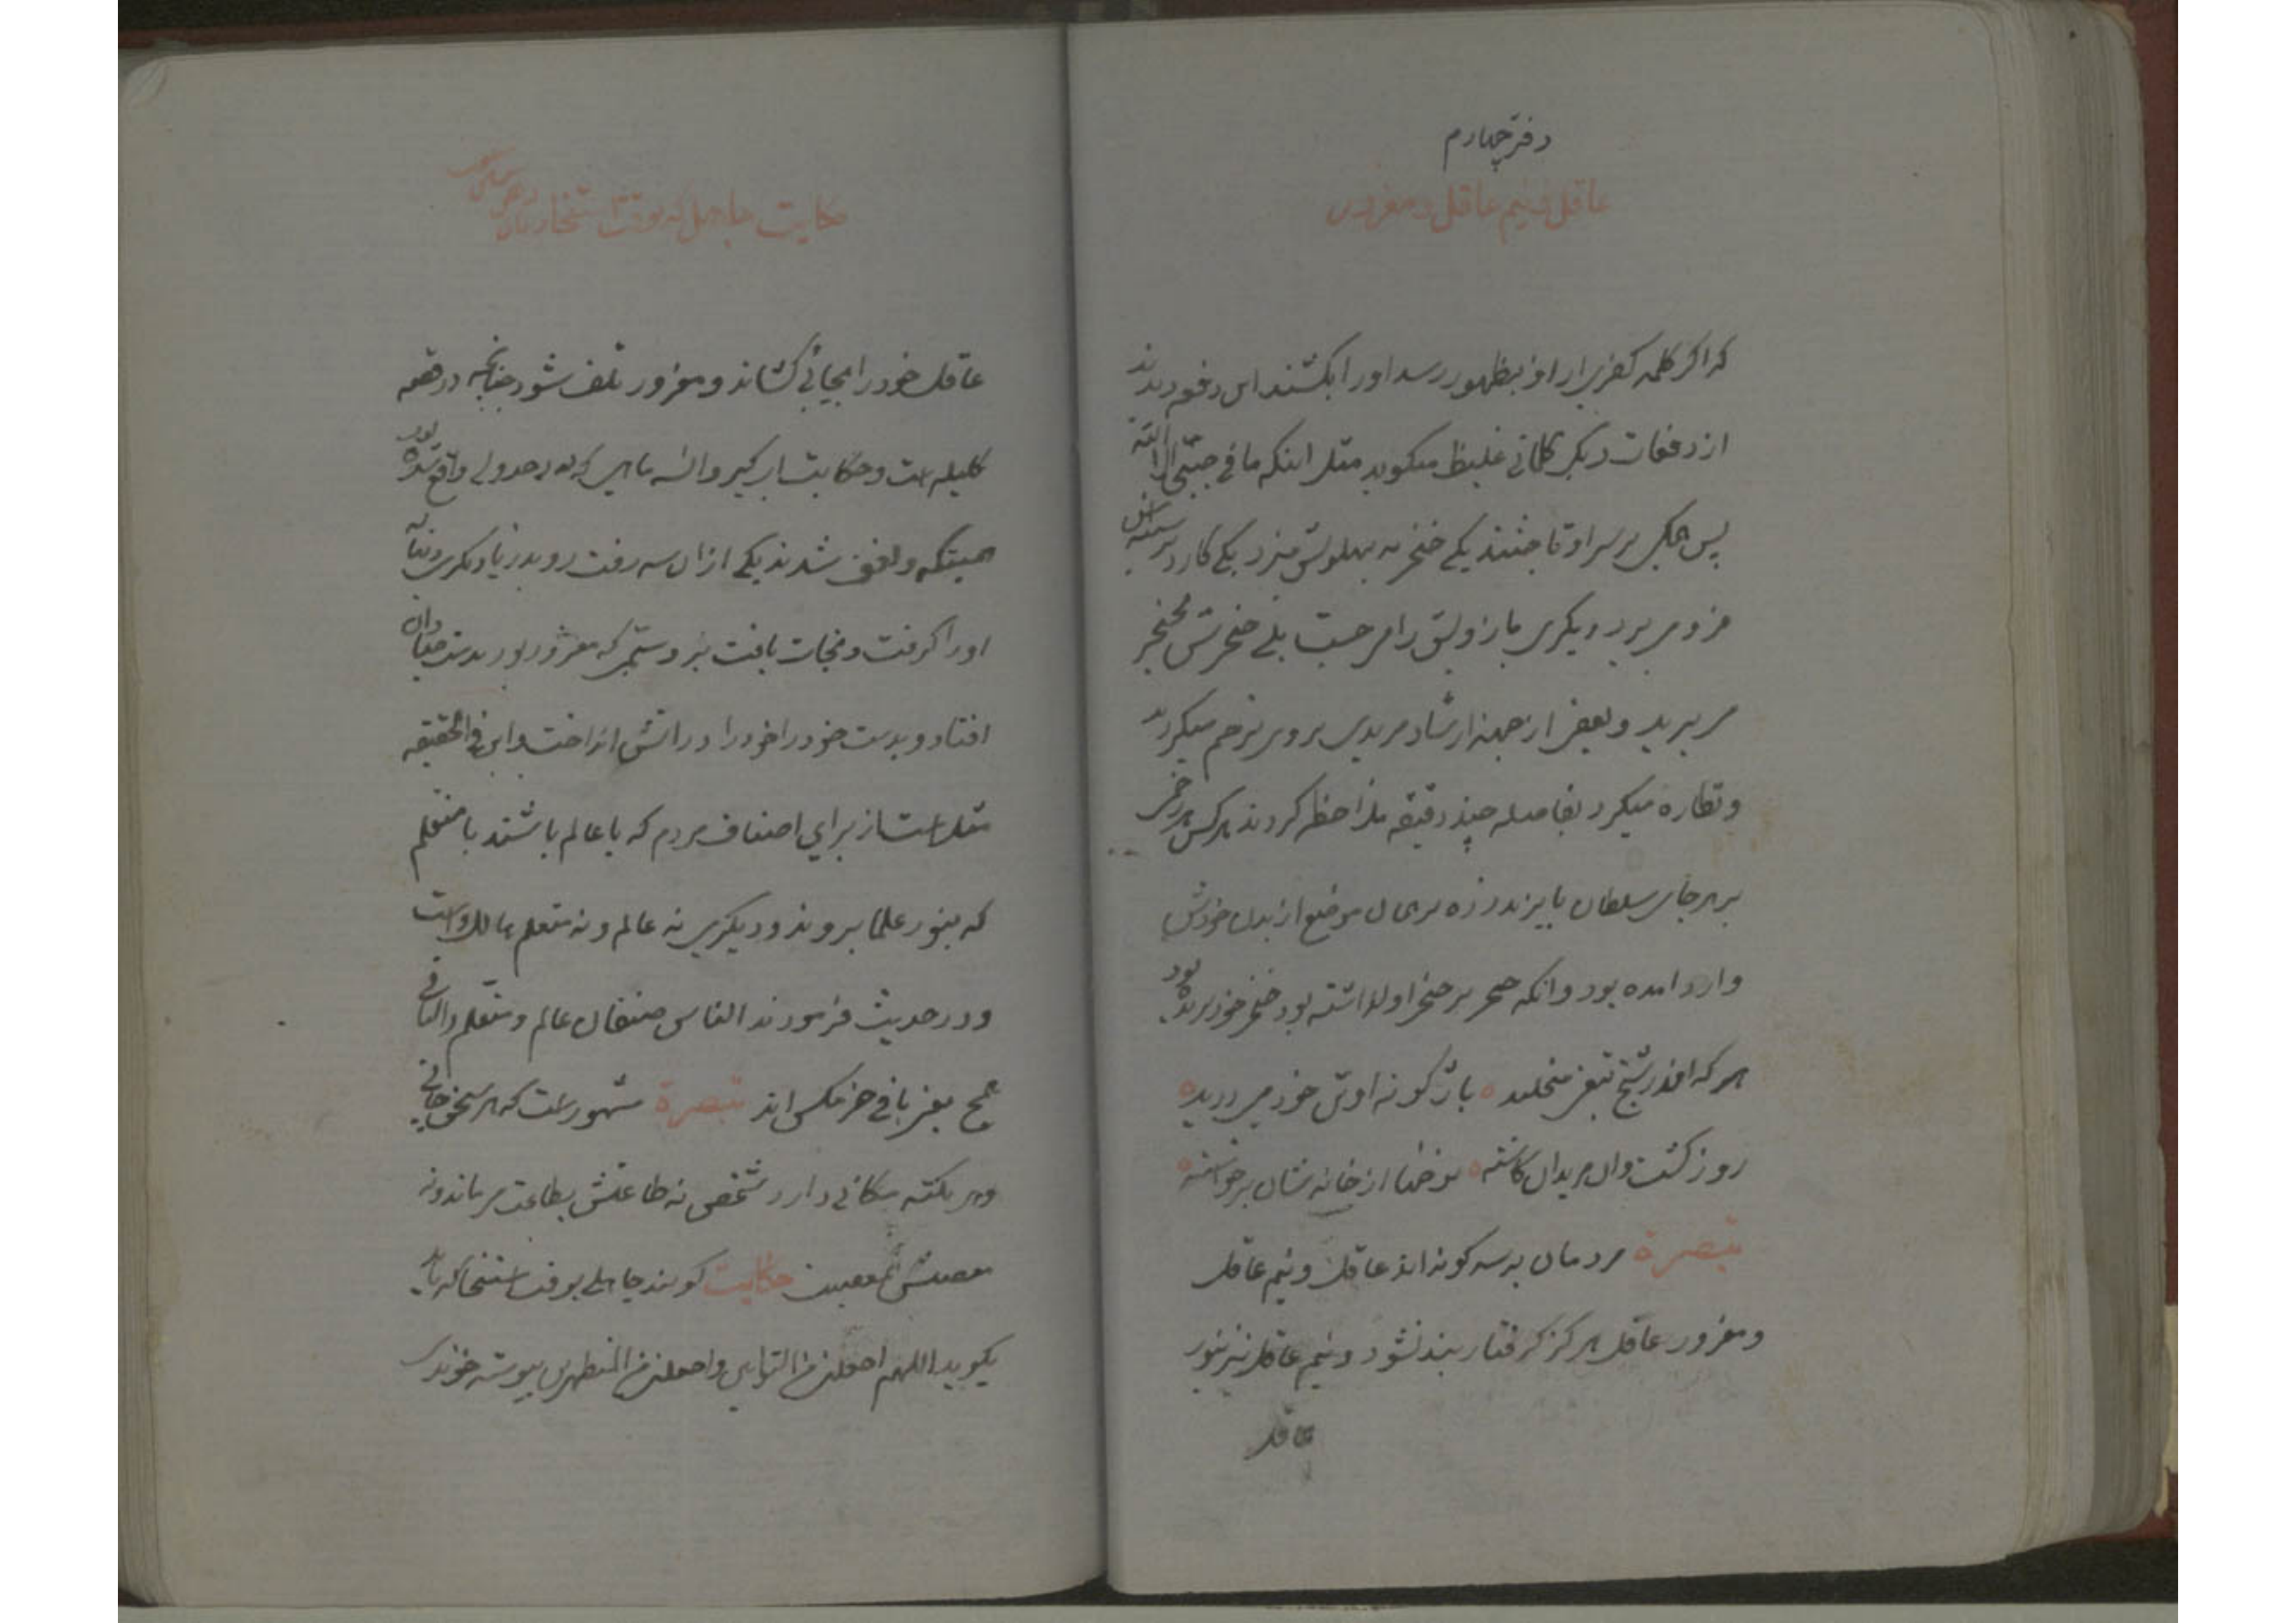 دفتر چهارم
عاقل و نیم عاقل و مغرور
که اگر کلمه کفری از او بظهور رسد او را بکشند این دفعه دیدند
از دفعات دیگر کلماتی غلیظ میگوید مثل اینکه ما فی جبتی الا الله
پس همگی بر سر او تاختند یکی خنجر به پهلویش میزد یکی کارد بر سینه اش
فرو می برد دیگری بازویش را می خست بلی خنجرش خنجر
می برید و بعضی از جهة ارشاد مریدی بر وی ترحم میکرد
و نظاره میکرد بفاصله چند دقیقه ملاحظه کردند هر کس هر زخمی
بر هر جای سلطان بایزید زده بر همان موضع از بدن خودش
وارد آمده بود و آنکه خنجر بر حنجر او گذاشته بود حنجر خود بریده بود
هر که اندر شیخ تیغی میخلید ٥ باژگونه او تن خود میدرید ٥
روز گشت و آن مریدان کاسته ٥ نوحها از خانه شان برخواسته ٥
تبصرة مردمان بر سه گونه اند عاقل و نیم عاقل
و مغرور عاقل هرگز گرفتار بند نشود و نیم عاقل نیز بنور
عاقل
حکایت جاهل که بوقت استنجا
عاقل خود را بجائی کشاند و مغرور تلف شود چنانچه در قصه
کلیله است و حکایت آبگیر و آن سه ماهی که در جدولی واقع شده بود
همینکه واقف شدند یکی از آن سه رفت رو بدریا دیگری دنباله
او را گرفت و نجات یافت نیز و سیمی که مغرور بود بدست صیادان
افتاد و بدست خود خود را در آتش انداخت و این فی الحقیقه
مثل است از برای اصناف مردم که یا عالم باشند یا متعلم
که بنور علما بروند و دیگری نه عالم و نه متعلم هالک است
و در حدیث فرمودند الناس صنفان عالم و متعلم و الباقی
همج یعنی باقی خرمگس اند تبصرة مشهور است که هر سخن جائی
و هر نکته مکانی دارد شخصی نه طاعتش بطاعت میماند و نه
معصیتش بمعصیت حکایت گویند جاهلی بوقت استنجا که باید
بگوید اللهم اجعلنی من التوابین واجعلنی من المتطهرین پیوسته خواندی